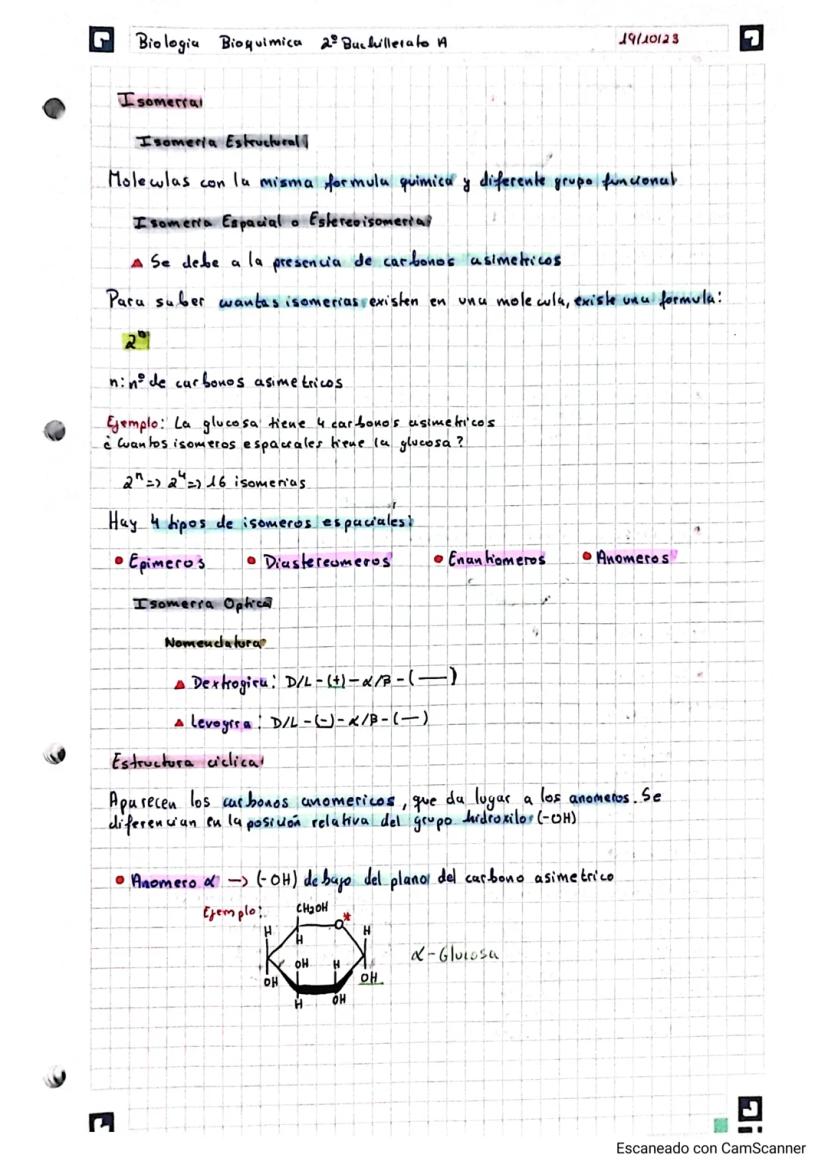 Biologia Bioquimica 2º Bachillerato A 19/10/23
Isomeria
Isomeria Estructural
Moleculas con la misma formula quimica y diferente grupo funcional
Isomeria Espacial o Estereoisomeria
Se debe a la presencia de carbonos asimetricos
Para saber cuantas isomerias existen en una molecula, existe una formula:
2ⁿ
n: nº de carbonos asimetricos
Ejemplo: La glucosa tiene 4 carbonos asimetricos
¿Cuantos isomeros espaciales tiene la glucosa?
2ⁿ => 2⁴ => 16 isomerias
Hay 4 tipos de isomeros espaciales:
• Epimeros • Diastereomeros • Enantiomeros • Anomeros
Isomeria Optica
Nomenclatura
Dextrogira: D/L-(+)-α/β-(—)
Levogira: D/L-(-)-α/β-(—)
Estructura ciclica
Aparecen los carbonos anomericos, que da lugar a los anomeros. Se
diferencian en la posición relativa del grupo hidroxilo (-OH)
• Anomero α —> (-OH) debajo del plano del carbono asimetrico
Ejemplo: CH₂OH
O *
H H H
OH H α-Glucosa
OH OH
H OH
Escaneado con CamScanner